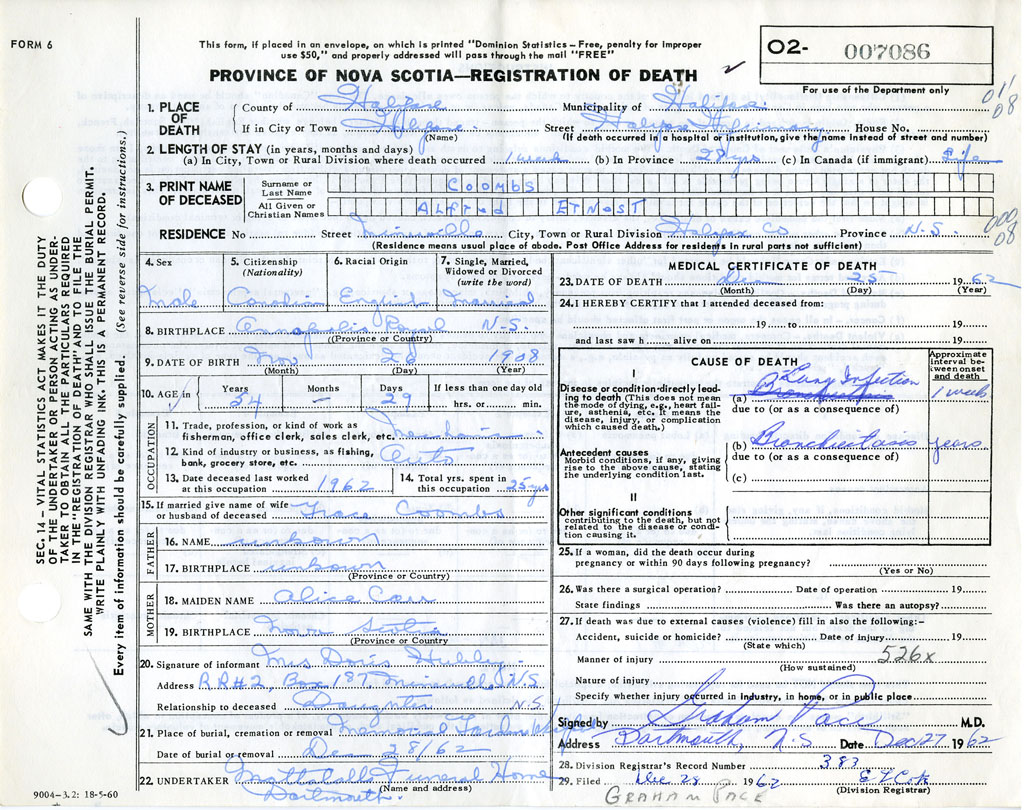 FORM 6
This form, if placed in an envelope, on which is printed "Dominion Statistics – Free, penalty for improper
use $50," and properly addressed will pass through the mail "FREE"
PROVINCE OF NOVA SCOTIA—REGISTRATION OF DEATH
O2- 007086
For use of the Department only
01/08
1. PLACE OF DEATH
County of Halifax Municipality of Halifax
If in City or Town Halifax Street Halifax Infirmary House No.
(Name) (If death occurred in a hospital or institution, give the name instead of street and number)
2. LENGTH OF STAY (in years, months and days)
(a) In City, Town or Rural Division where death occurred 1 week (b) In Province 28 yrs (c) In Canada (if immigrant) Life
3. PRINT NAME OF DECEASED
Surname or Last Name COOMBS
All Given or Christian Names Alfred ErnesT
000/08
RESIDENCE No Street City, Town or Rural Division Halifax Co Province N.S.
(Residence means usual place of abode. Post Office Address for residents in rural parts not sufficient)
4. Sex
Male
5. Citizenship
(Nationality)
Canadian
6. Racial Origin
English
7. Single, Married, Widowed or Divorced
(write the word)
Married
8. BIRTHPLACE Annapolis Royal N.S.
(Province or Country)
9. DATE OF BIRTH Nov 26 1908
(Month) (Day) (Year)
10. AGE in Years 54 Months – Days 29 If less than one day old
hrs. or min.
OCCUPATION
11. Trade, profession, or kind of work as
fisherman, office clerk, sales clerk, etc. Mechanic
12. Kind of industry or business, as fishing,
bank, grocery store, etc. Auto
13. Date deceased last worked
at this occupation 1962
14. Total yrs. spent in
this occupation 25 yrs
15. If married give name of wife
or husband of deceased Grace Coombs
FATHER
16. NAME unknown
17. BIRTHPLACE unknown
(Province or Country)
MOTHER
18. MAIDEN NAME Alice Carr
19. BIRTHPLACE Nova Scotia
(Province or Country)
20. Signature of informant Mrs Doris Hubley
Address RR#2, Box 187, N.S.
Relationship to deceased Daughter N.S.
21. Place of burial, cremation or removal Memorial Gardens
Date of burial or removal Dec 28/62
22. UNDERTAKER Mattatall Funeral Home
(Name and address)
Dartmouth.
9004-3.2: 18-5-60
MEDICAL CERTIFICATE OF DEATH
23. DATE OF DEATH Dec 25 1962
(Month) (Day) (Year)
24. I HEREBY CERTIFY that I attended deceased from:
19 to 19
and last saw h alive on 19
CAUSE OF DEATH
Approximate interval between onset and death
I
Disease or condition directly leading to death (This does not mean
the mode of dying, e.g., heart failure, asthenia, etc. It means the
disease, injury, or complication
which caused death.)
(a) Lung Infection 1 week
due to (or as a consequence of)
Antecedent causes
Morbid conditions, if any, giving
rise to the above cause, stating
the underlying condition last.
(b) Bronchiectasis years
due to (or as a consequence of)
(c)
II
Other significant conditions
contributing to the death, but not
related to the disease or condition causing it.
25. If a woman, did the death occur during
pregnancy or within 90 days following pregnancy?
(Yes or No)
26. Was there a surgical operation? Date of operation 19
State findings Was there an autopsy?
27. If death was due to external causes (violence) fill in also the following:–
Accident, suicide or homicide? Date of injury 19
(State which)
Manner of injury 526x
(How sustained)
Nature of injury
Specify whether injury occurred in industry, in home, or in public place
Signed by Graham Pace M.D.
Address Dartmouth, N.S Date Dec 27 1962
28. Division Registrar's Record Number 383
29. Filed Dec 28 1962
(Division Registrar)
GRAHAM PACE
SEC. 14 – VITAL STATISTICS ACT MAKES IT THE DUTY
OF THE UNDERTAKER OR PERSON ACTING AS UNDER-
TAKER TO OBTAIN ALL THE PARTICULARS REQUIRED
IN THE "REGISTRATION OF DEATH" AND TO FILE THE
SAME WITH THE DIVISION REGISTRAR WHO SHALL ISSUE THE BURIAL PERMIT.
WRITE PLAINLY WITH UNFADING INK. THIS IS A PERMANENT RECORD.
Every item of information should be carefully supplied. (See reverse side for instructions.)